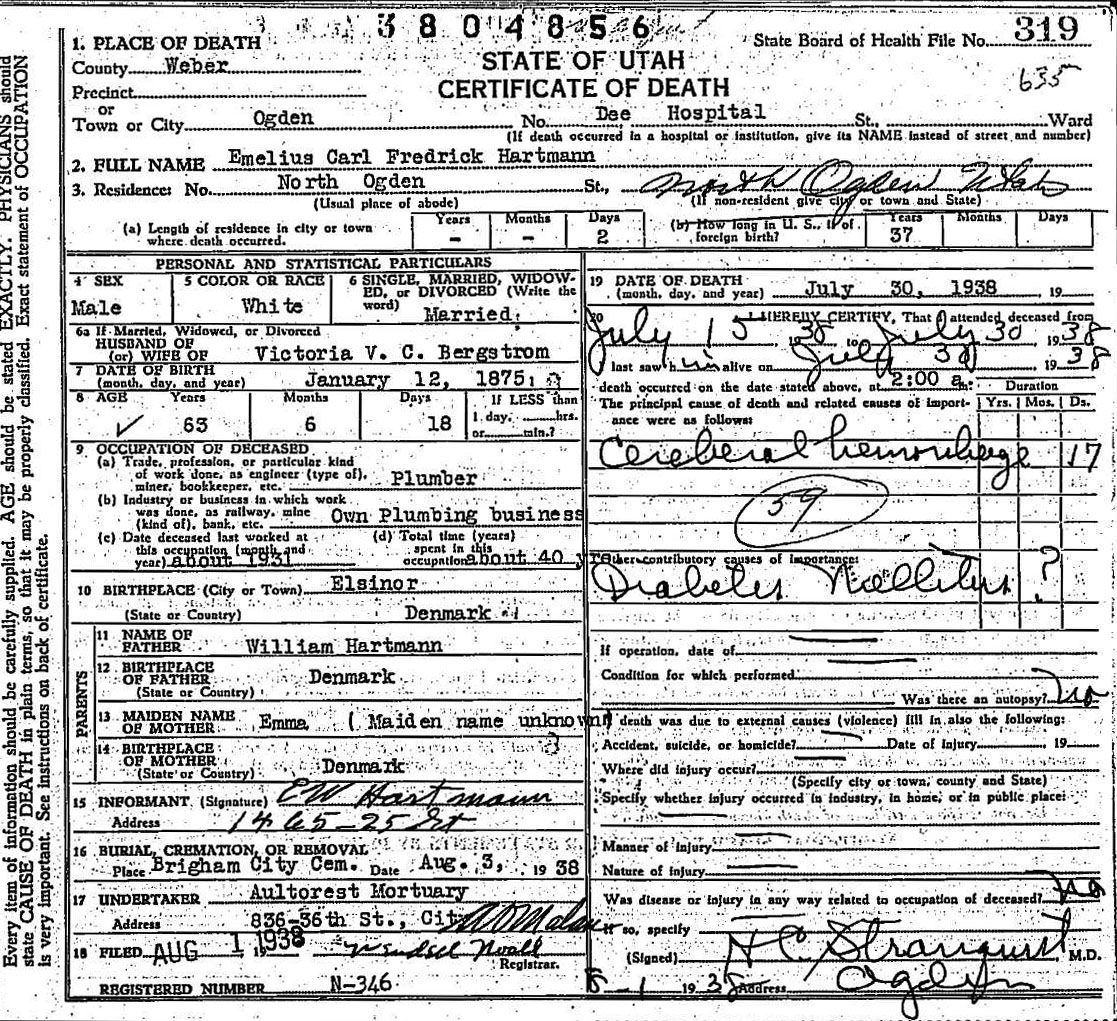 3804856
State Board of Health File No. 319
635
STATE OF UTAH
CERTIFICATE OF DEATH
1. PLACE OF DEATH
County Weber
Precinct
or
Town or City Ogden No. Dee Hospital St., Ward
(If death occurred in a hospital or institution, give its NAME instead of street and number)
2. FULL NAME Emelius Carl Fredrick Hartmann
3. Residence: No. North Ogden St., North Ogden Utah
(Usual place of abode) (If non-resident give city or town and State)
(a) Length of residence in city or town where death occurred. Years - Months - Days 2
(b) How long in U. S., if of foreign birth? Years 37 Months Days
PERSONAL AND STATISTICAL PARTICULARS
4 SEX Male
5 COLOR OR RACE White
6 SINGLE, MARRIED, WIDOWED, or DIVORCED (Write the word) Married
6a If Married, Widowed, or Divorced
HUSBAND OF
(or) WIFE OF Victoria V. C. Bergstrom
7 DATE OF BIRTH
(month, day, and year) January 12, 1875
8 AGE Years 63 Months 6 Days 18 If LESS than 1 day, hrs. or min.?
9 OCCUPATION OF DECEASED
(a) Trade, profession, or particular kind of work done, as engineer (type of), miner, bookkeeper, etc. Plumber
(b) Industry or business in which work was done, as railway, mine (kind of), bank, etc. Own Plumbing business
(c) Date deceased last worked at this occupation (month and year) about 1931
(d) Total time (years) spent in this occupation about 40 yrs
10 BIRTHPLACE (City or Town) Elsinor
(State or Country) Denmark
PARENTS
11 NAME OF FATHER William Hartmann
12 BIRTHPLACE OF FATHER
(State or Country) Denmark
13 MAIDEN NAME OF MOTHER Emma (Maiden name unknown)
14 BIRTHPLACE OF MOTHER
(State or Country) Denmark
15 INFORMANT (Signature) E W Hartmann
Address 1465-25 St
16 BURIAL, CREMATION, OR REMOVAL
Place Brigham City Cem. Date Aug. 3, 1938
17 UNDERTAKER Aultorest Mortuary
Address 836-36th St., City
18 FILED AUG 1 1938 19
Registrar.
REGISTERED NUMBER N-346
19 DATE OF DEATH
(month, day, and year) July 30, 1938 19
20 I HEREBY CERTIFY, That I attended deceased from
July 15 1938 to July 30 1938
I last saw him alive on July 30 1938
death occurred on the date stated above, at 2:00 a m. Duration
The principal cause of death and related causes of importance were as follows: Yrs. Mos. Ds.
Cerebral hemorrhage 17
59
Other contributory causes of importance:
Diabetes Mellitus ?
If operation, date of
Condition for which performed
Was there an autopsy? no
If death was due to external causes (violence) fill in also the following:
Accident, suicide, or homicide? Date of Injury 19
Where did injury occur?
(Specify city or town, county and State)
Specify whether injury occurred in industry, in home, or in public place:
Manner of injury
Nature of injury
Was disease or injury in any way related to occupation of deceased? no
If so, specify
(Signed) H C Stranquist M.D.
8-1 1938 Address Ogden
Every item of information should be carefully supplied. AGE should be stated EXACTLY. PHYSICIANS should
state CAUSE OF DEATH in plain terms, so that it may be properly classified. Exact statement of OCCUPATION
is very important. See instructions on back of certificate.